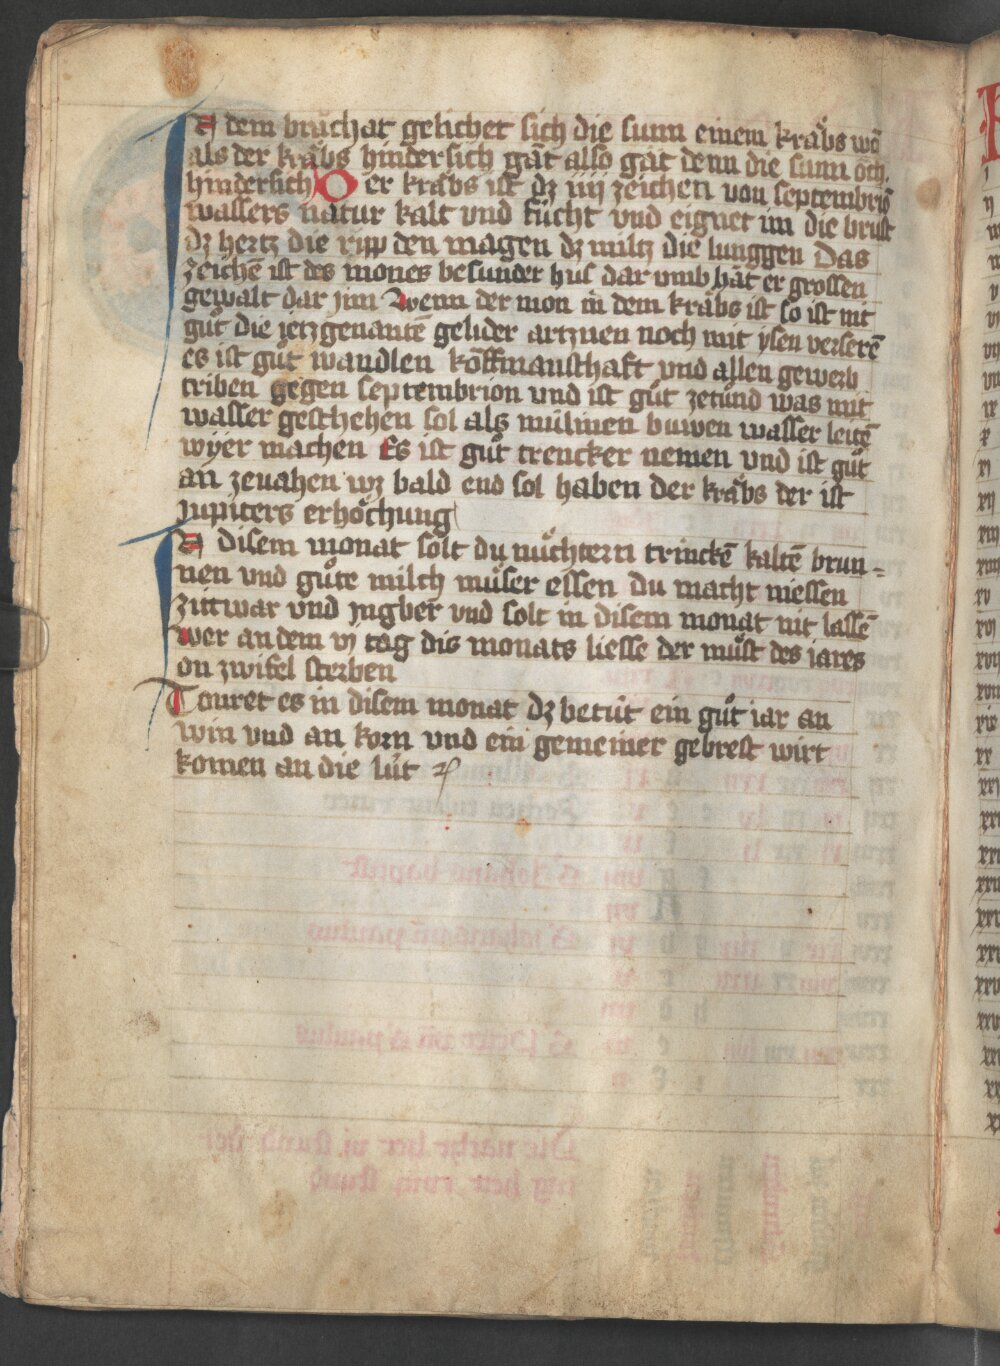 In dem brachat gelichet sich die sunn einem kräbs wō
als der kräbs hindersich gät also gät denn die sunn öch
hindersich Der kräbs ist dz iiij zeichen von septembriō
wassers natur kalt vnd fücht vnd eignet im die brust
dz hertz die ripp den magen dz miltz die lunggen Das
zeichē ist des mones besunder hus dar vmb hät er grossen
gewalt dar jnn Wenn der mon in dem kräbs ist so ist nit
guͦt die ietzgenante gelider artznen noch mit ysen verserē
es ist guͦt wandlen köffmanschaft vnd allen gewerb
triben gegen septembrion vnd ist guͦt zetuͦnd was mit
wasser geschehen sol als mülinen buwen wasser leitē
wyer machen Es ist guͦt trencker nemen vnd ist guͦt
an zeuahen wz bald end sol haben der kräbs der ist
jupiters erhöchung
In disem monat solt du nuͤchtern trinckē kaltē brun=
nen vnd guͦte milch muͤser essen du macht niessen
zitwar vnd jngber vnd solt in disem monat nit lassē
wer an dem vj tag dis monats liesse der muͤst des iares
on zwifel sterben
Touret es in disem monat dz betüt ein guͦt iar an
win vnd an korn vnd ein gemeiner gebrest wirt
komen an die lüt